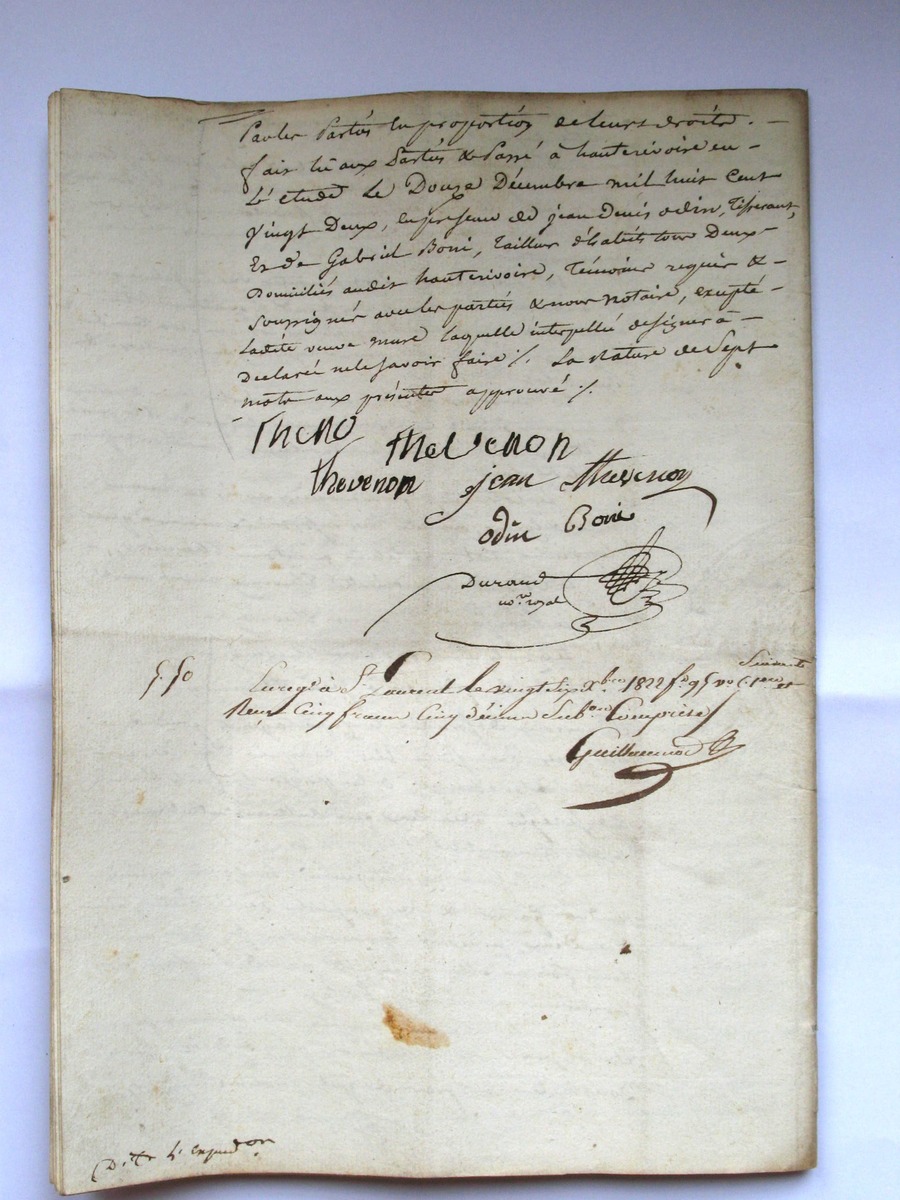 Par les Partiés En proportion de leurs droits. —
fait lu aux Partiés & Passé à hauterivoire en —
L'étude Le Douze Décembre mil huit Cent
Vingt Deux, en présence de jean Denis odin, Tisserant,
Et de Gabriel Boni, Tailleur d'habits tous Deux —
Domiciliés audit hauterivoire, Témoins requis & —
Soussignés avec les partiés & nous notaire, excepté —
Ladite veuve mure laquelle interpellée de signer à —
Declarée ne le savoir faire /. La rature de Sept
mots aux présentes approuvé /.
Theno thevenon
thevenon jean thevenon
odin Boni
Durand
no.re royal
5. 50 Enregé à St Laurent le vingt Six Xbre 1822 fo 95 vo C. 1ere et Suivantes
Reçu Cinq francs Cinq décimes Sub.on Comprise
Guillermod